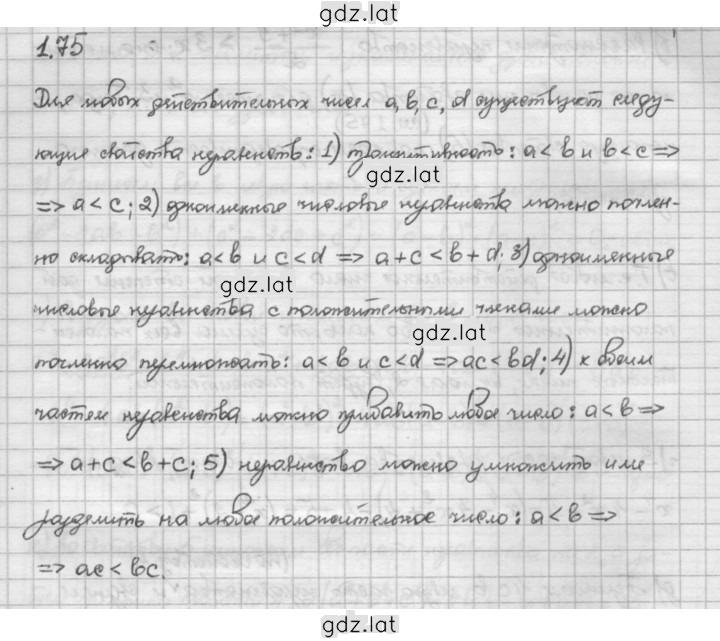 gdz.lat
1.75
Для любых действительных чисел a, b, c, d существуют следу-
ющие свойства неравенств: 1) транзитивность: a < b и b < c ⇒
gdz.lat
⇒ a < c; 2) одноименные числовые неравенства можно почлен-
но складывать: a < b и c < d ⇒ a + c < b + d; 3) одноименные
gdz.lat
числовые неравенства с положительными членами можно
gdz.lat
почленно перемножать: a < b и c < d ⇒ ac < bd; 4) к обеим
частям неравенства можно прибавить любое число: a < b ⇒
gdz.lat
⇒ a + c < b + c; 5) неравенство можно умножить или
разделить на любое положительное число: a < b ⇒
gdz.lat
⇒ ac < bc.
gdz.lat